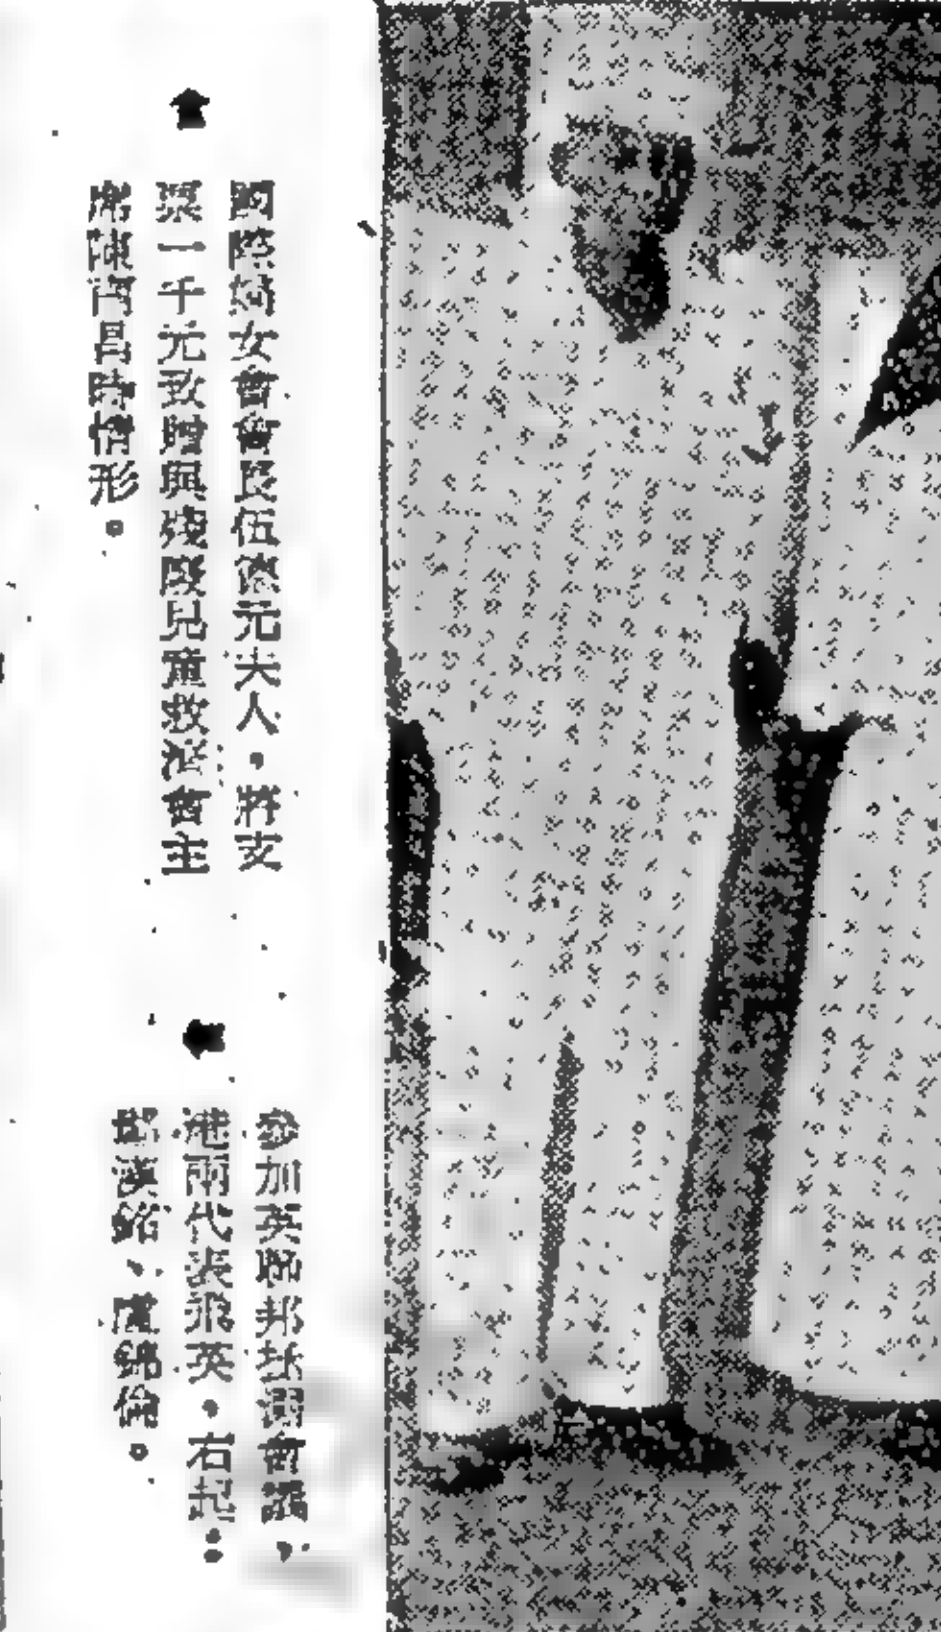 國際婦女會會長伍德元夫人，將支
票一千元致贈與殘廢兒童救濟會主
席陳丙昌時情形。
參加英聯邦技術會議，
港兩代表飛英。右起：
漢銘、盧錦倫。